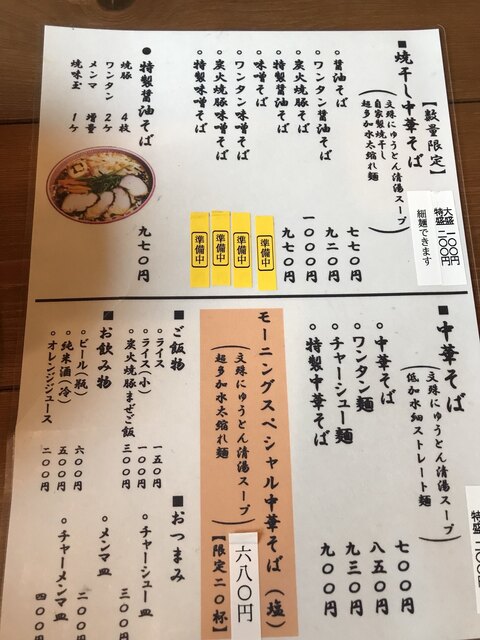 ■焼干し中華そば【数量限定】
（文殊にゅうとん清湯スープ
自家製焼干し
超多加水太縮れ麺）
大盛 一〇〇円
特盛 二〇〇円
細麺できます
○醤油そば 七七〇円
○ワンタン醤油そば 九二〇円
○炭火焼豚醤油そば 一〇〇〇円
○特製醤油そば 九七〇円
○味噌そば 準備中
○ワンタン味噌そば 準備中
○炭火焼豚味噌そば 準備中
○特製味噌そば 準備中
●特製醤油そば 九七〇円
焼豚 4枚
ワンタン 2ケ
メンマ 増量
焼味玉 1ケ
■中華そば
（文殊にゅうとん清湯スープ
低加水細ストレート麺）
○中華そば 七〇〇円
○ワンタン麺 八五〇円
○チャーシュー麺 九三〇円
○特製中華そば 九〇〇円
モーニングスペシャル中華そば（塩）
（文殊にゅうとん清湯スープ
超多加水太縮れ麺）
【限定20杯】
六八〇円
■ご飯物
○ライス 一五〇円
○ライス（小） 一〇〇円
○炭火焼豚まぜご飯 三〇〇円
■お飲み物
○ビール（瓶） 六〇〇円
○純米酒（冷） 五〇〇円
○オレンジジュース 二〇〇円
■おつまみ
○チャーシュー皿 三〇〇
○メンマ皿 二〇〇
○チャーメンマ皿 四〇〇